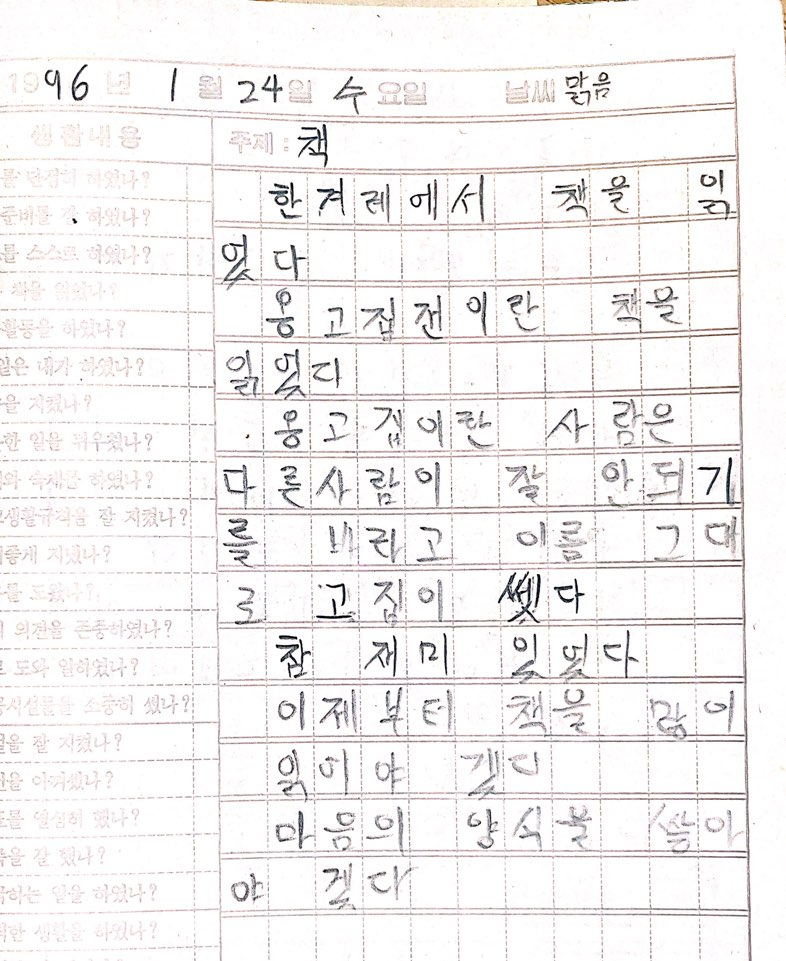 1996년 1월 24일 수요일 날씨 맑음
생활내용
주제 : 책
를 단정히 하였나?
준비를 잘 하였나?
를 스스로 하였나?
책을 읽었나?
활동을 하였나?
일은 내가 하였나?
을 지켰나?
한 일을 뉘우쳤나?
와 숙제를 하였나?
생활규칙을 잘 지켰나?
이좋게 지냈나?
를 도왔나?
의견을 존중하였나?
도와 일하였나?
공시설물을 소중히 썼나?
을 잘 지켰나?
을 아껴썼나?
를 열심히 했나?
을 잘 했나?
하는 일을 하였나?
한 생활을 하였나?
한겨레에서 책을 읽
었다
옹고집전이란 책을
읽었다
옹고집이란 사람은
다른사람이 잘 안되기
를 바라고 이름 그대
로 고집이 쎘다
참 재미 있었다
이제부터 책을 많이
읽어야 겠다
마음의 양식을 쌓아
야 겠다